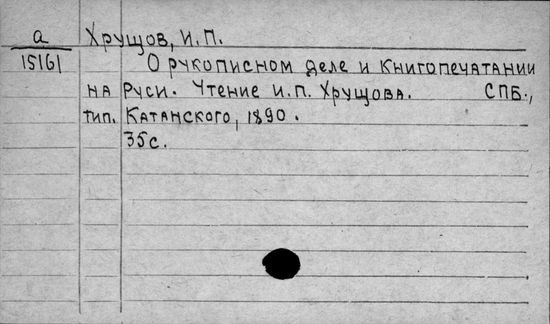 а Хрущов, И.П.
15161 О рукописном деле и книгопечатании
на Руси. Чтение И.П. Хрущова. СПБ.,
тип. Катанского, 1890.
35с.